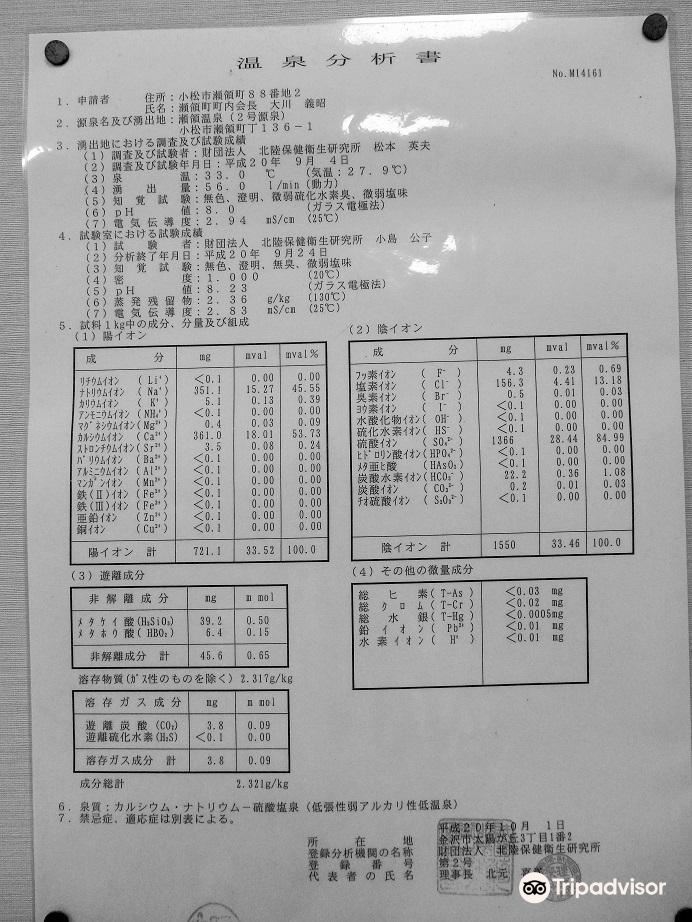 温泉分析書
No.M14161
1．申請者 住所：小松市瀬領町８８番地２
氏名：瀬領町町内会長 大川 義昭
2．源泉名及び湧出地：瀬領温泉（２号源泉）
小松市瀬領町丁１３６－１
3．湧出地における調査及び試験成績
(1) 調査及び試験者：財団法人 北陸保健衛生研究所 松本 英夫
(2) 調査及び試験年月日：平成２０年 ９月 ４日
(3) 泉温：３３.０ ℃ (気温：２７.９℃)
(4) 湧出量：５６.０ l/min (動力)
(5) 知覚試験：無色、澄明、微弱硫化水素臭、微弱塩味
(6) pH値：８.０ (ガラス電極法)
(7) 電気伝導度：２.９４ mS/cm (25℃)
4．試験室における試験成績
(1) 試験者：財団法人 北陸保健衛生研究所 小島 公子
(2) 分析終了年月日：平成２０年 ９月２４日
(3) 知覚試験：無色、澄明、無臭、微弱塩味
(4) 密度：１.０００ (20℃)
(5) pH値：８.２３ (ガラス電極法)
(6) 蒸発残留物：２.３６ g/kg (130℃)
(7) 電気伝導度：２.８３ mS/cm (25℃)
5．試料１kg中の成分、分量及び組成
(1) 陽イオン
成分 mg mval mval%
ﾘﾁｳﾑｲｵﾝ (Li⁺) <0.1 0.00 0.00
ﾅﾄﾘｳﾑｲｵﾝ (Na⁺) 351.1 15.27 45.55
ｶﾘｳﾑｲｵﾝ (K⁺) 5.1 0.13 0.39
ｱﾝﾓﾆｳﾑｲｵﾝ (NH₄⁺) <0.1 0.00 0.00
ﾏｸﾞﾈｼｳﾑｲｵﾝ (Mg²⁺) 0.4 0.03 0.09
ｶﾙｼｳﾑｲｵﾝ (Ca²⁺) 361.0 18.01 53.73
ｽﾄﾛﾝﾁｳﾑｲｵﾝ (Sr²⁺) 3.5 0.08 0.24
ﾊﾞﾘｳﾑｲｵﾝ (Ba²⁺) <0.1 0.00 0.00
ｱﾙﾐﾆｳﾑｲｵﾝ (Al³⁺) <0.1 0.00 0.00
ﾏﾝｶﾞﾝｲｵﾝ (Mn²⁺) <0.1 0.00 0.00
鉄(Ⅱ)イオン (Fe²⁺) <0.1 0.00 0.00
鉄(Ⅲ)イオン (Fe³⁺) <0.1 0.00 0.00
亜鉛イオン (Zn²⁺) <0.1 0.00 0.00
銅イオン (Cu²⁺) <0.1 0.00 0.00
陽イオン 計 721.1 33.52 100.0
(2) 陰イオン
成分 mg mval mval%
ﾌｯ素ｲｵﾝ (F⁻) 4.3 0.23 0.69
塩素イオン (Cl⁻) 156.3 4.41 13.18
臭素イオン (Br⁻) 0.5 0.01 0.03
ヨウ素イオン (I⁻) <0.1 0.00 0.00
水酸化物イオン (OH⁻) <0.1 0.00 0.00
硫化水素イオン (HS⁻) <0.1 0.00 0.00
硫酸イオン (SO₄²⁻) 1366 28.44 84.99
ﾋﾄﾞﾛﾘﾝ酸ｲｵﾝ (HPO₄²⁻) <0.1 0.00 0.00
ﾒﾀ亜ヒ酸 (HAsO₂) <0.1 0.00 0.00
炭酸水素イオン (HCO₃⁻) 22.2 0.36 1.08
炭酸イオン (CO₃²⁻) 0.2 0.01 0.03
ﾁｵ硫酸イオン (S₂O₃²⁻) <0.1 0.00 0.00
陰イオン 計 1550 33.46 100.0
(3) 遊離成分
非解離成分 mg m mol
ﾒﾀｹｲ酸 (H₂SiO₃) 39.2 0.50
ﾒﾀﾎｳ酸 (HBO₂) 6.4 0.15
非解離成分 計 45.6 0.65
溶存物質(ｶﾞｽ性のものを除く) 2.317g/kg
溶存ガス成分 mg m mol
遊離炭酸 (CO₂) 3.8 0.09
遊離硫化水素 (H₂S) <0.1 0.00
溶存ガス成分 計 3.8 0.09
成分総計 2.321g/kg
(4) その他の微量成分
総ヒ素 (T-As) <0.03 mg
総クロム (T-Cr) <0.02 mg
総水銀 (T-Hg) <0.0005mg
鉛イオン (Pb²⁺) <0.01 mg
水素イオン (H⁺) <0.01 mg
6．泉質：カルシウム・ナトリウム－硫酸塩泉（低張性弱アルカリ性低温泉）
7．禁忌症、適応症は別表による。
平成２０年１０月 １日
所在地 金沢市太陽が丘3丁目1番2
登録分析機関の名称 財団法人 北陸保健衛生研究所
登録番号 第２号
代表者の氏名 理事長 北元
Tripadvisor